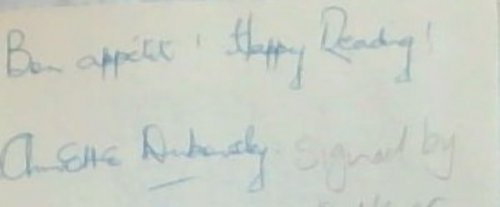 Bon appétit! Happy Reading!
Annette Dubovsky signed by